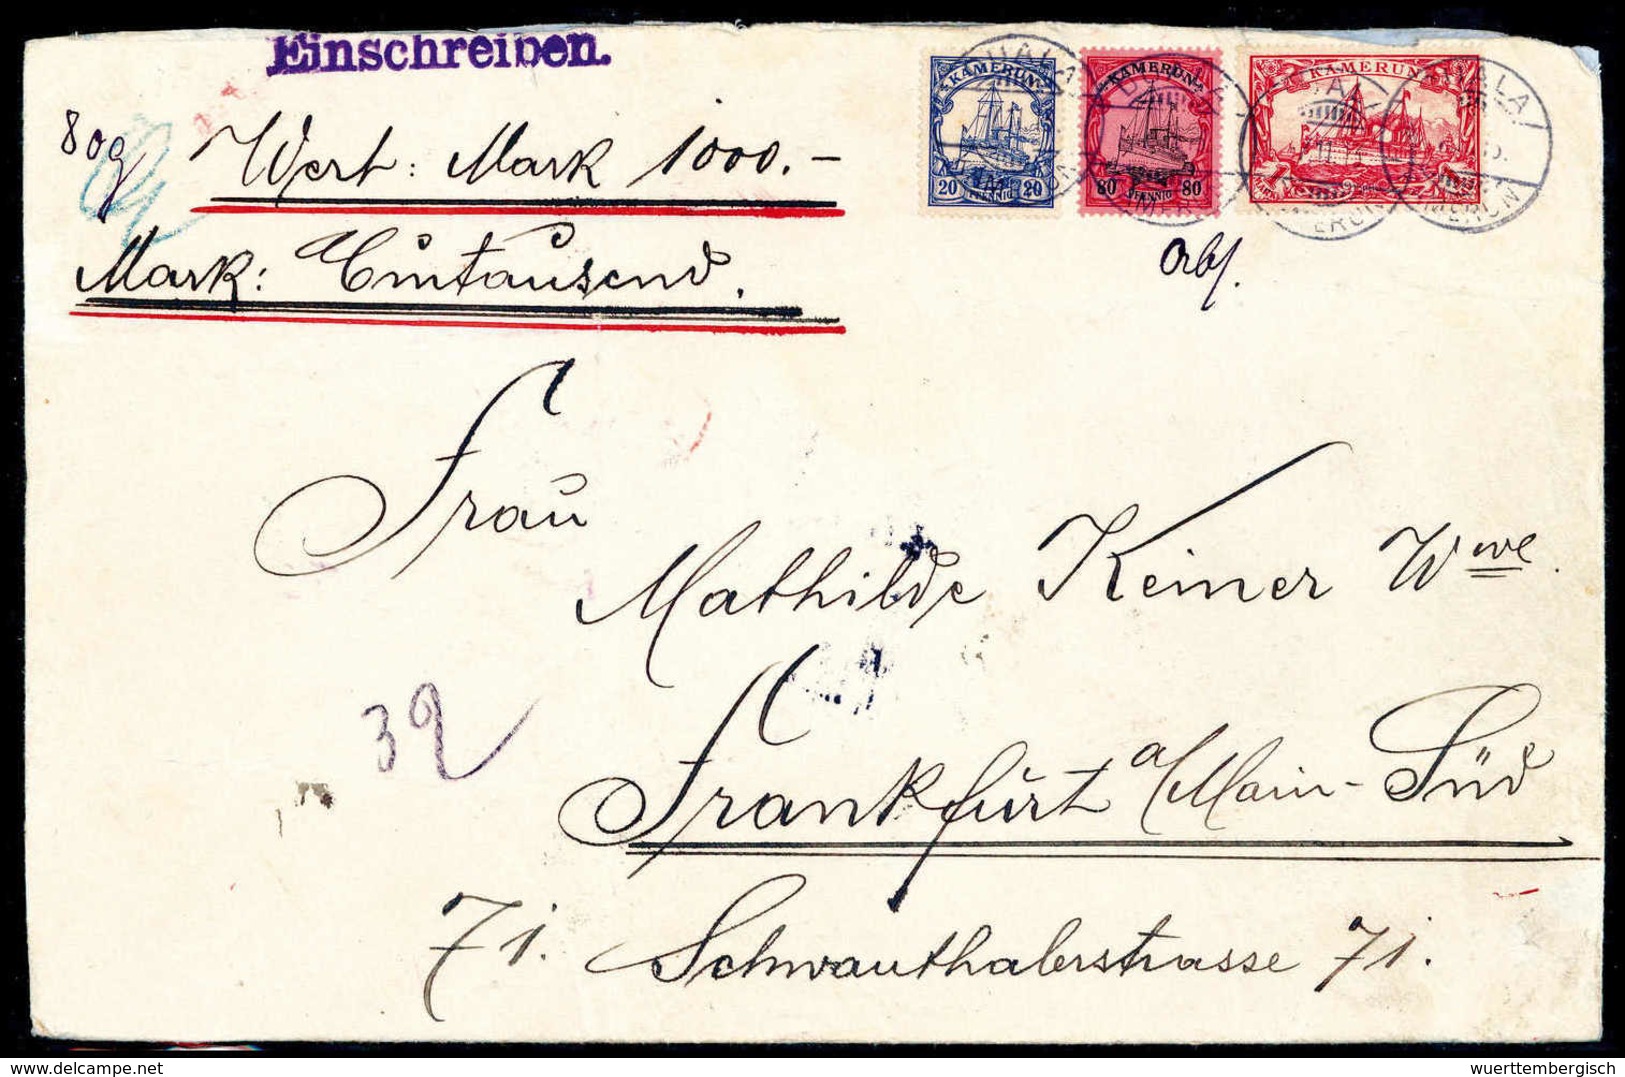 Einschreiben.
80g
Wert: Mark 1000.-
Mark: Eintausend.
KAMERUN
20 PFENNIG 20
KAMERUN
80 PFENNIG 80
KAMERUN
1 MARK
DUALA
KAMERUN
Frau
Mathilde Keiner Wwe.
32
Frankfurt a/Main-Süd
71. Schwanthalerstrasse 71.
wuerttembergisch